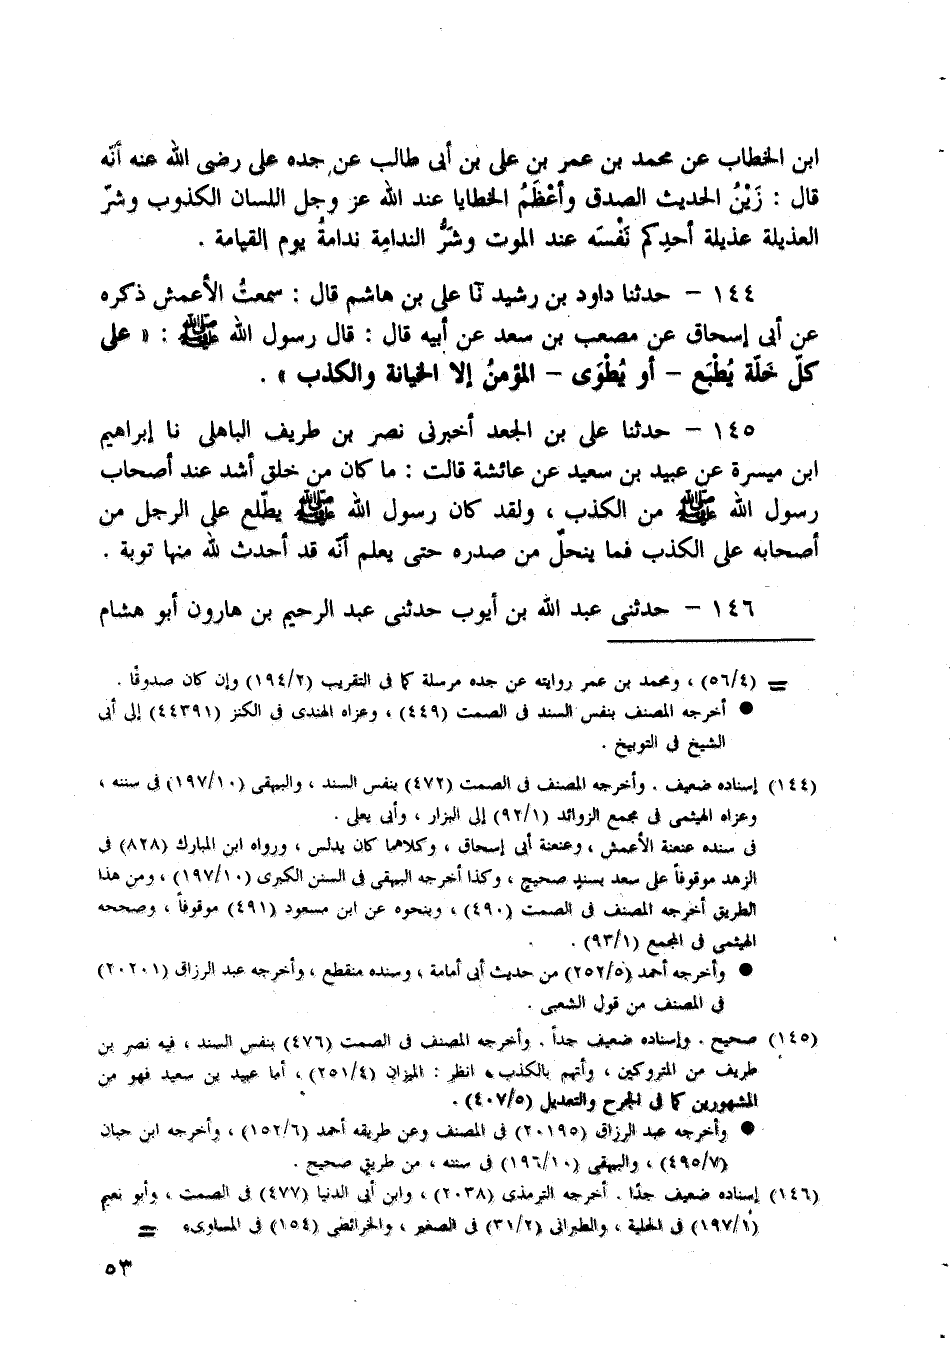 ابن الخطاب عن محمد بن عمر بن على بن أبى طالب عن جده على رضى الله عنه أنّه
قال : زَيْنُ الحديث الصدق وأعْظَمُ الخطايا عند الله عز وجل اللسان الكذوب وشرّ
العذيلة عذيلة أحدِكم نَفْسَه عند الموت وشرُّ الندامة ندامةُ يوم القيامة .
١٤٤ – حدثنا داود بن رشيد نَا على بن هاشم قال : سمعتُ الأعمش ذكره
عن أبى إسحاق عن مصعب بن سعد عن أبيه قال : قال رسول الله ﷺ : « على
كلّ خَلّة يُطْبَع – أو يُطْوَى – المؤمنُ إلا الخيانة والكذب » .
١٤٥ – حدثنا على بن الجعد أخبرنى نصر بن طريف الباهلى نا إبراهيم
ابن ميسرة عن عبيد بن سعيد عن عائشة قالت : ما كان من خلق أشد عند أصحاب
رسول الله ﷺ من الكذب ، ولقد كان رسول الله ﷺ يطّلع على الرجل من
أصحابه على الكذب فما ينحلّ من صدره حتى يعلم أنّه قد أحدث لله منها توبة .
١٤٦ – حدثنى عبد الله بن أيوب حدثنى عبد الرحيم بن هارون أبو هشام
= (٥٦/٤) ، ومحمد بن عمر روايته عن جده مرسلة كما فى التقريب (١٩٤/٢) وإن كان صدوقًا .
● أخرجه المصنف بنفس السند فى الصمت (٤٤٩) ، وعزاه الهندى فى الكنز (٤٤٣٩١) إلى أبى
الشيخ فى التوبيخ .
(١٤٤) إسناده ضعيف . وأخرجه المصنف فى الصمت (٤٧٢) بنفس السند ، والبيهقى (١٩٧/١٠) فى سننه ،
وعزاه الهيثمى فى مجمع الزوائد (٩٢/١) إلى البزار ، وأبى يعلى .
فى سنده عنعنة الأعمش ، وعنعنة أبى إسحاق ، وكلاهما كان يدلس ، ورواه ابن المبارك (٨٢٨) فى
الزهد موقوفاً على سعد بسندٍ صحيح ، وكذا أخرجه البيهقى فى السنن الكبرى (١٩٧/١٠) ، ومن هذا
الطريق أخرجه المصنف فى الصمت (٤٩٠) ، وبنحوه عن ابن مسعود (٤٩١) موقوفاً ، وصححه
الهيثمى فى المجمع (٩٣/١) .
● وأخرجه أحمد (٢٥٢/٥) من حديث أبى أمامة ، وسنده منقطع ، وأخرجه عبد الرزاق (٢٠٢٠١)
فى المصنف من قول الشعبى .
(١٤٥) صحيح . وإسناده ضعيف جداً . وأخرجه المصنف فى الصمت (٤٧٦) بنفس السند ، فيه نصر بن
طريف من المتروكين ، وأتهم بالكذب، انظر : الميزان (٢٥١/٤) ، أما عبيد بن سعيد فهو من
المشهورين كما فى الجرح والتعديل (٤٠٧/٥) .
● وأخرجه عبد الرزاق (٢٠١٩٥) فى المصنف وعن طريقه أحمد (١٥٢/٦) ، وأخرجه ابن حبان
(٤٩٥/٧) ، والبيهقى (١٩٦/١٠) فى سننه ، من طريقٍ صحيح .
(١٤٦) إسناده ضعيف جدًا . أخرجه الترمذى (٢٠٣٨) ، وابن أبى الدنيا (٤٧٧) فى الصمت ، وأبو نعيم
(١٩٧/١) فى الحلية ، والطبرانى (٣١/٢) فى الصغير ، والخرائطى (١٥٤) فى المساوىء =
٥٣